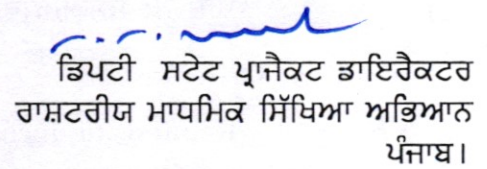 ਡਿਪਟੀ ਸਟੇਟ ਪ੍ਰਾਜੈਕਟ ਡਾਇਰੈਕਟਰ
ਰਾਸ਼ਟਰੀਯ ਮਾਧਮਿਕ ਸਿੱਖਿਆ ਅਭਿਆਨ
ਪੰਜਾਬ।